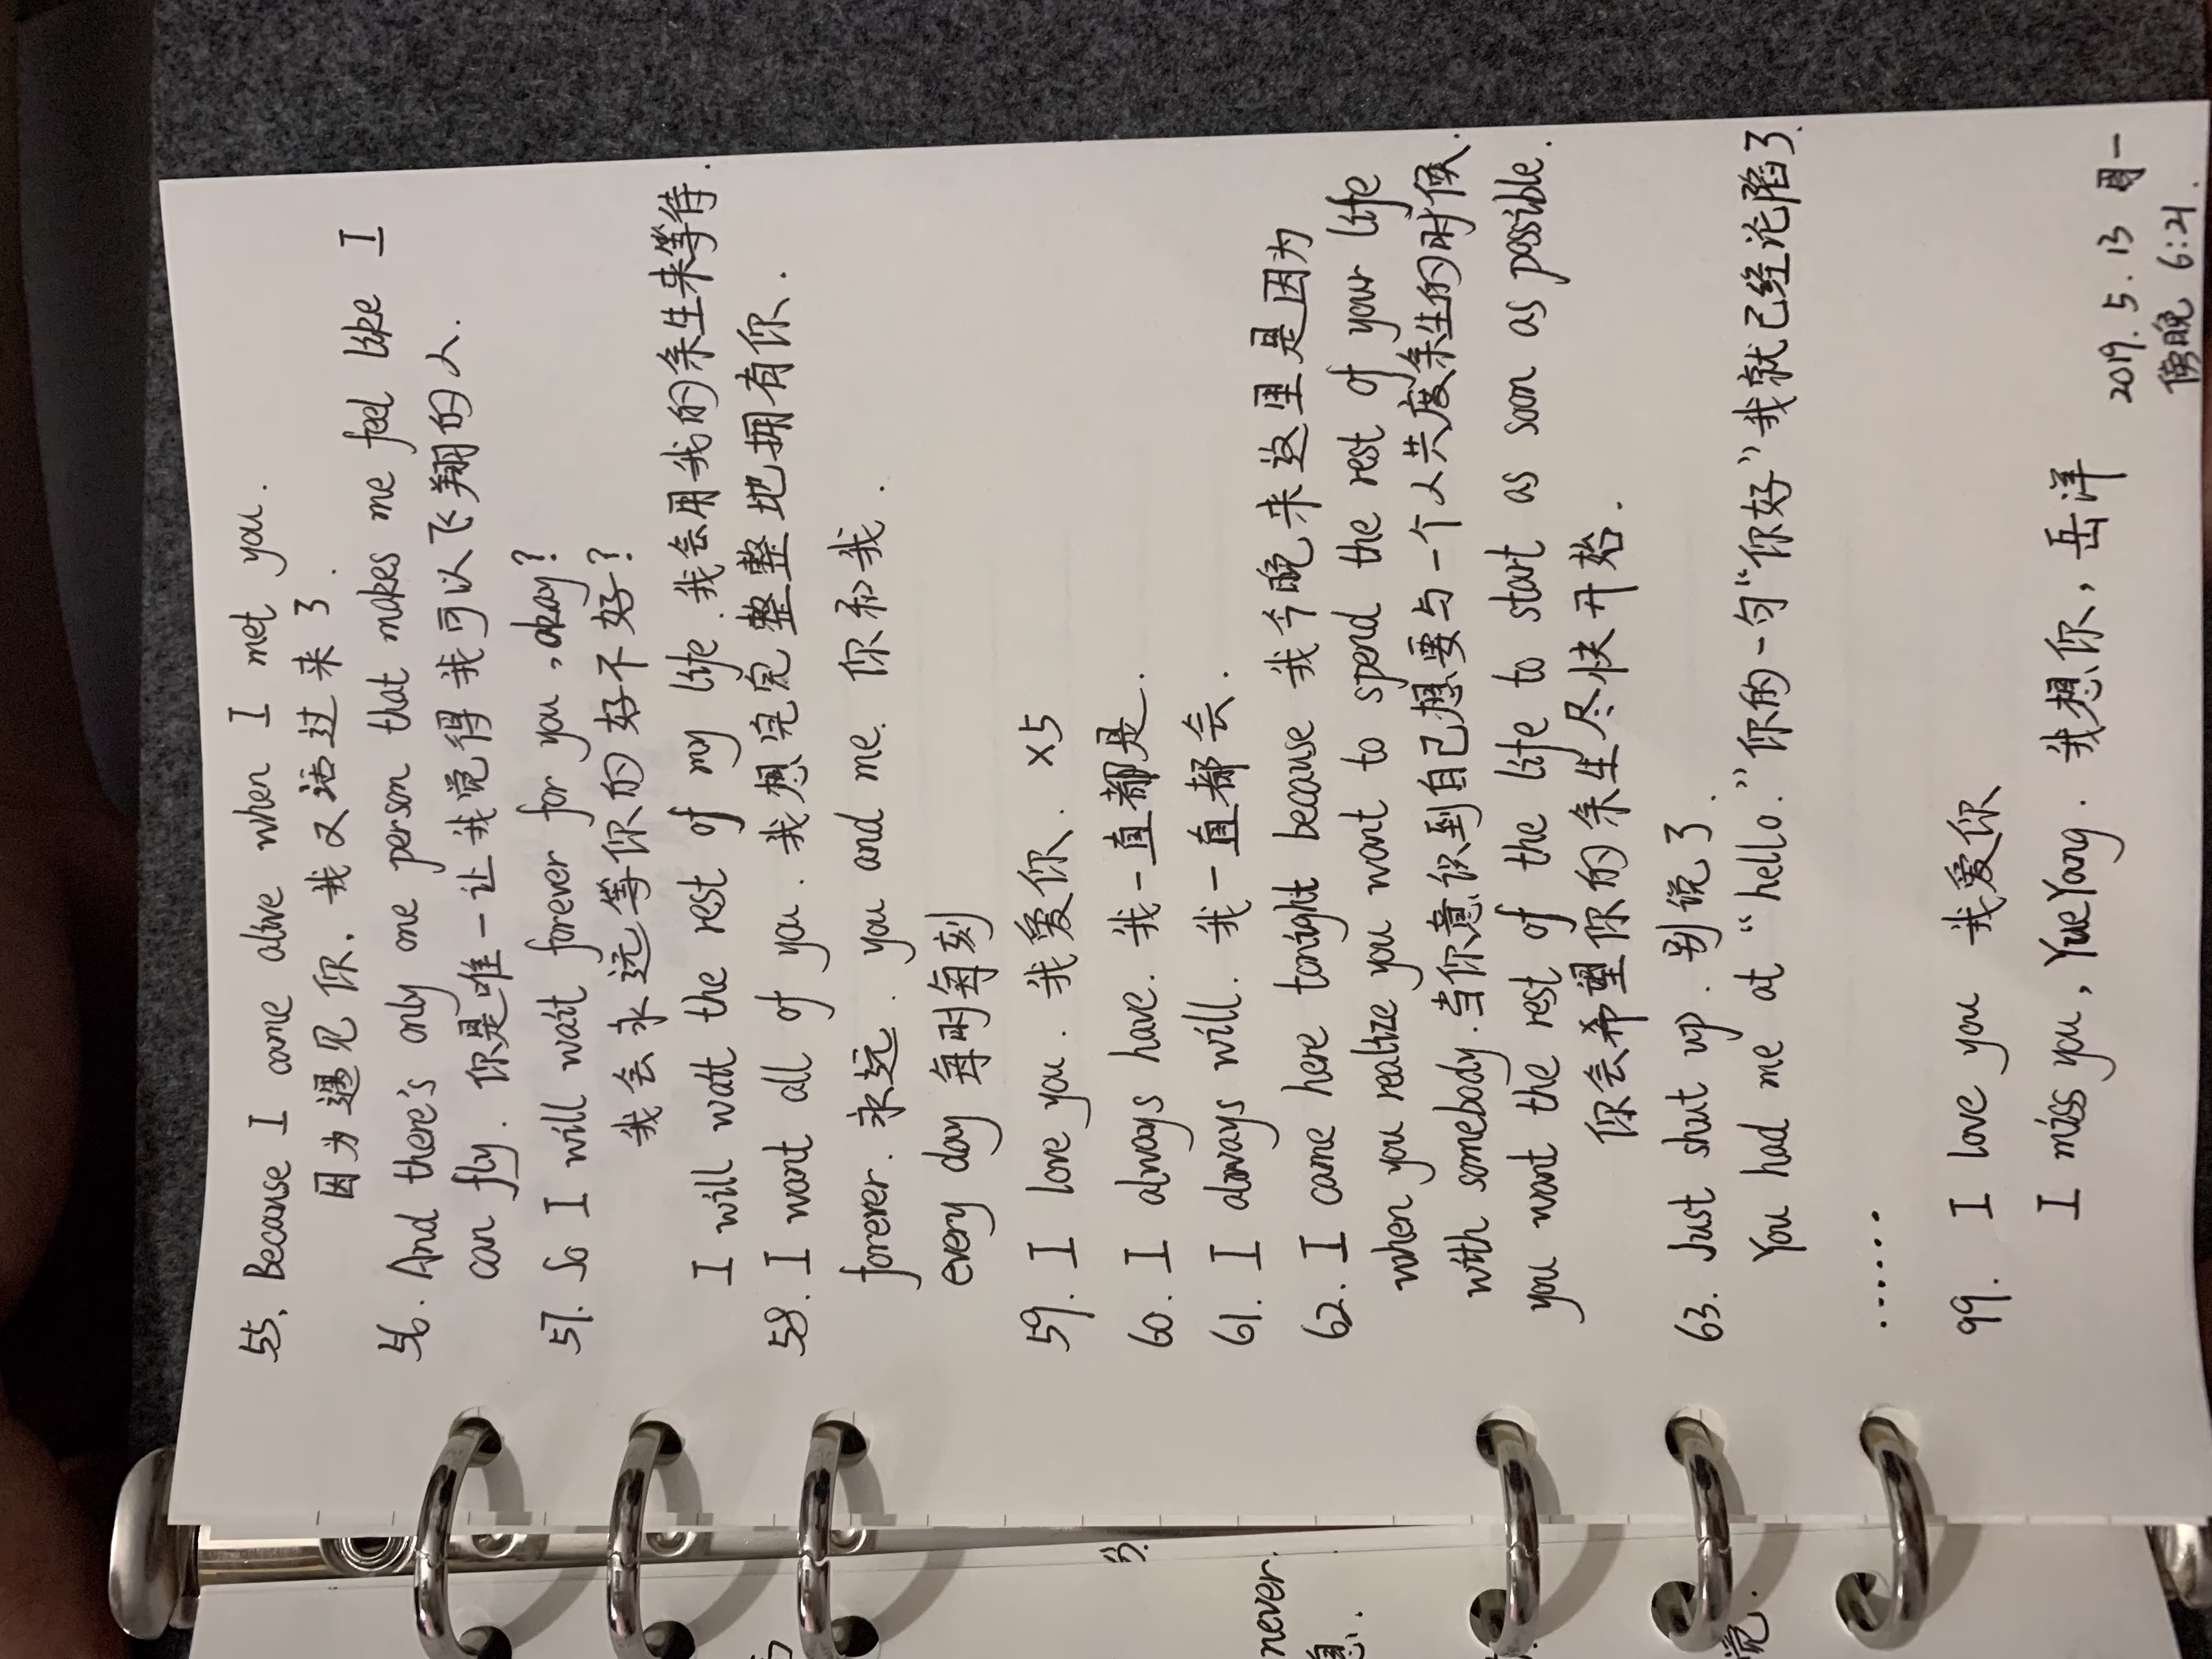 55. Because I came alive when I met you.
因为遇见你，我又活过来了.
56. And there's only one person that makes me feel like I
can fly. 你是唯一让我觉得我可以飞翔的人.
57. So I will wait forever for you, okay?
我会永远等你的好不好?
I will wait the rest of my life. 我会用我的余生来等待.
58. I want all of you. 我想完完整整地拥有你.
forever. 永远. you and me. 你和我.
every day 每时每刻
59. I love you. 我爱你. ×5
60. I always have. 我一直都是.
61. I always will. 我一直都会.
62. I came here tonight because 我今晚来这里是因为
when you realize you want to spend the rest of your life
with somebody. 当你意识到自己想要与一个人共度余生的时候.
you want the rest of the life to start as soon as possible.
你会希望你的余生尽快开始.
63. Just shut up. 别说了.
You had me at “hello.” 你的一句“你好”我就已经沦陷了.
......
99. I love you 我爱你
I miss you, YueYang. 我想你, 岳洋
2019. 5. 13 周一
傍晚 6:21.
never.
息.
觉.